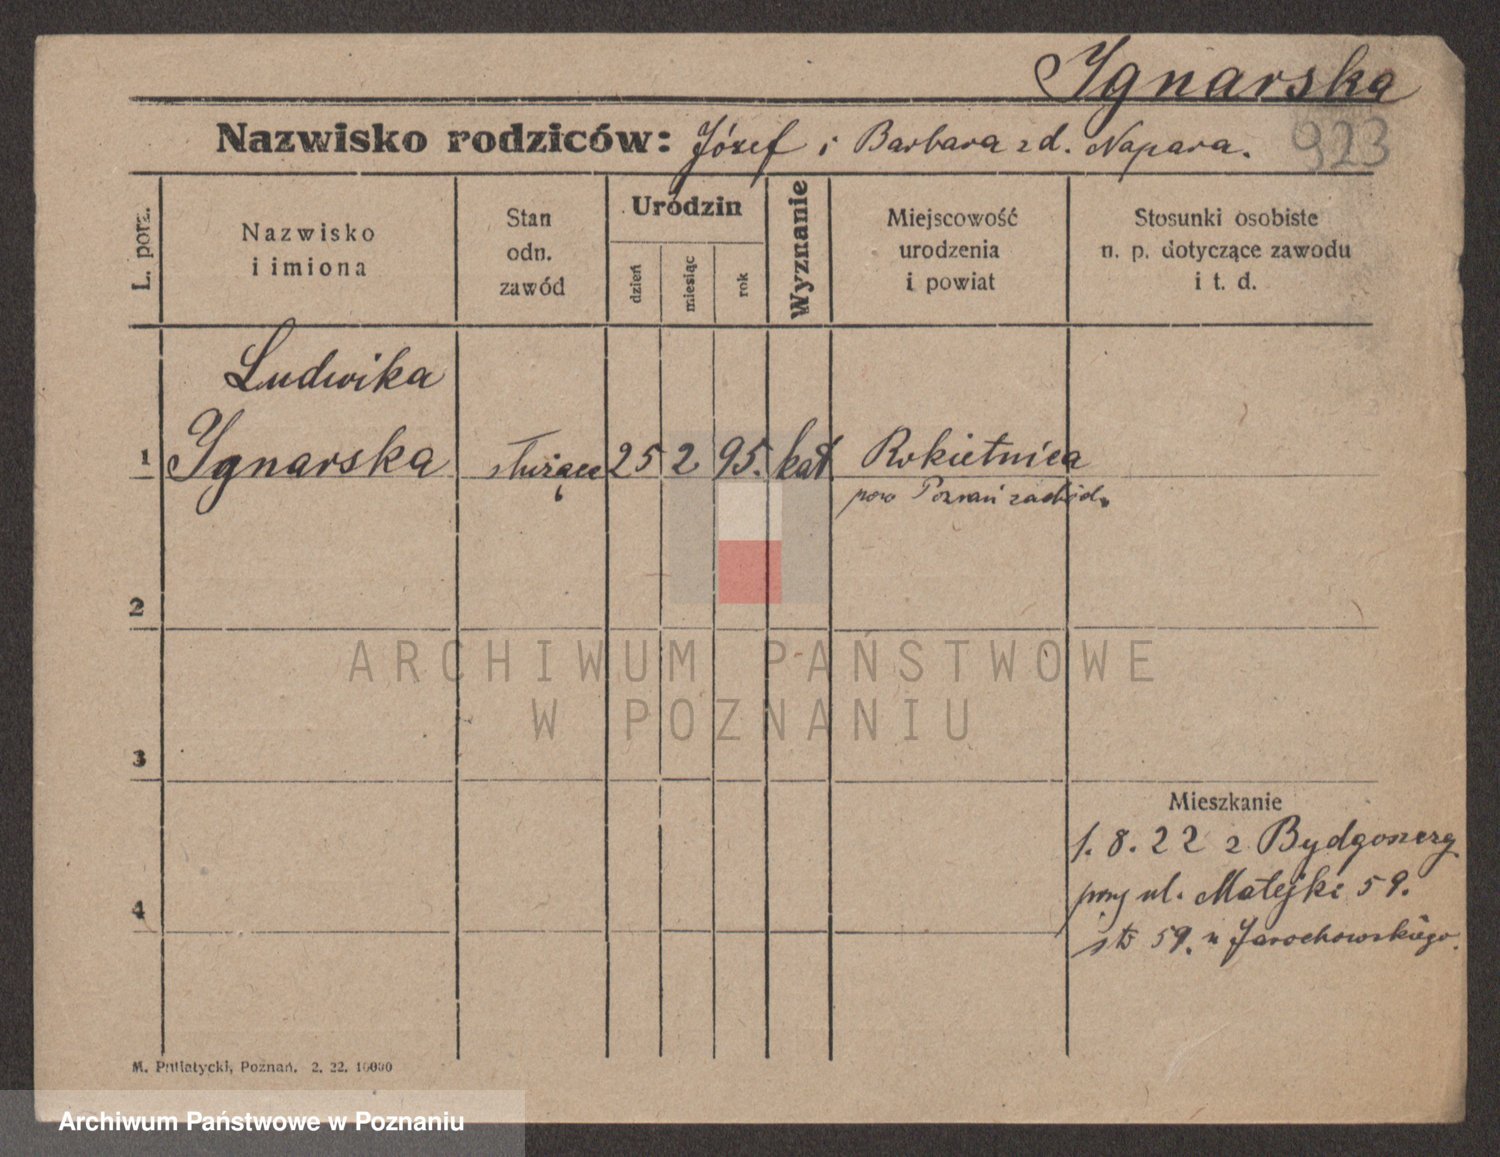 Ignarska
Nazwisko rodziców: Józef i Barbara zd. Napara.
923
L. porz.
Nazwisko
i imiona
Stan
odn.
zawód
Urodzin
dzień
miesiąc
rok
Wyznanie
Miejscowość
urodzenia
i powiat
Stosunki osobiste
n. p. dotyczące zawodu
i t. d.
Ludwika
1 Ignarska służąca 25 2 95. kat Rokietnica
pow Poznań zachod.
2
ARCHIWUM PAŃSTWOWE
W POZNANIU
3
Mieszkanie
1. 8. 22 z Bydgoszczy
przy ul. Matejki 59.
4
59. u Jarochowskiego.
M. Putiatycki, Poznań. 2. 22. 10000
Archiwum Państwowe w Poznaniu